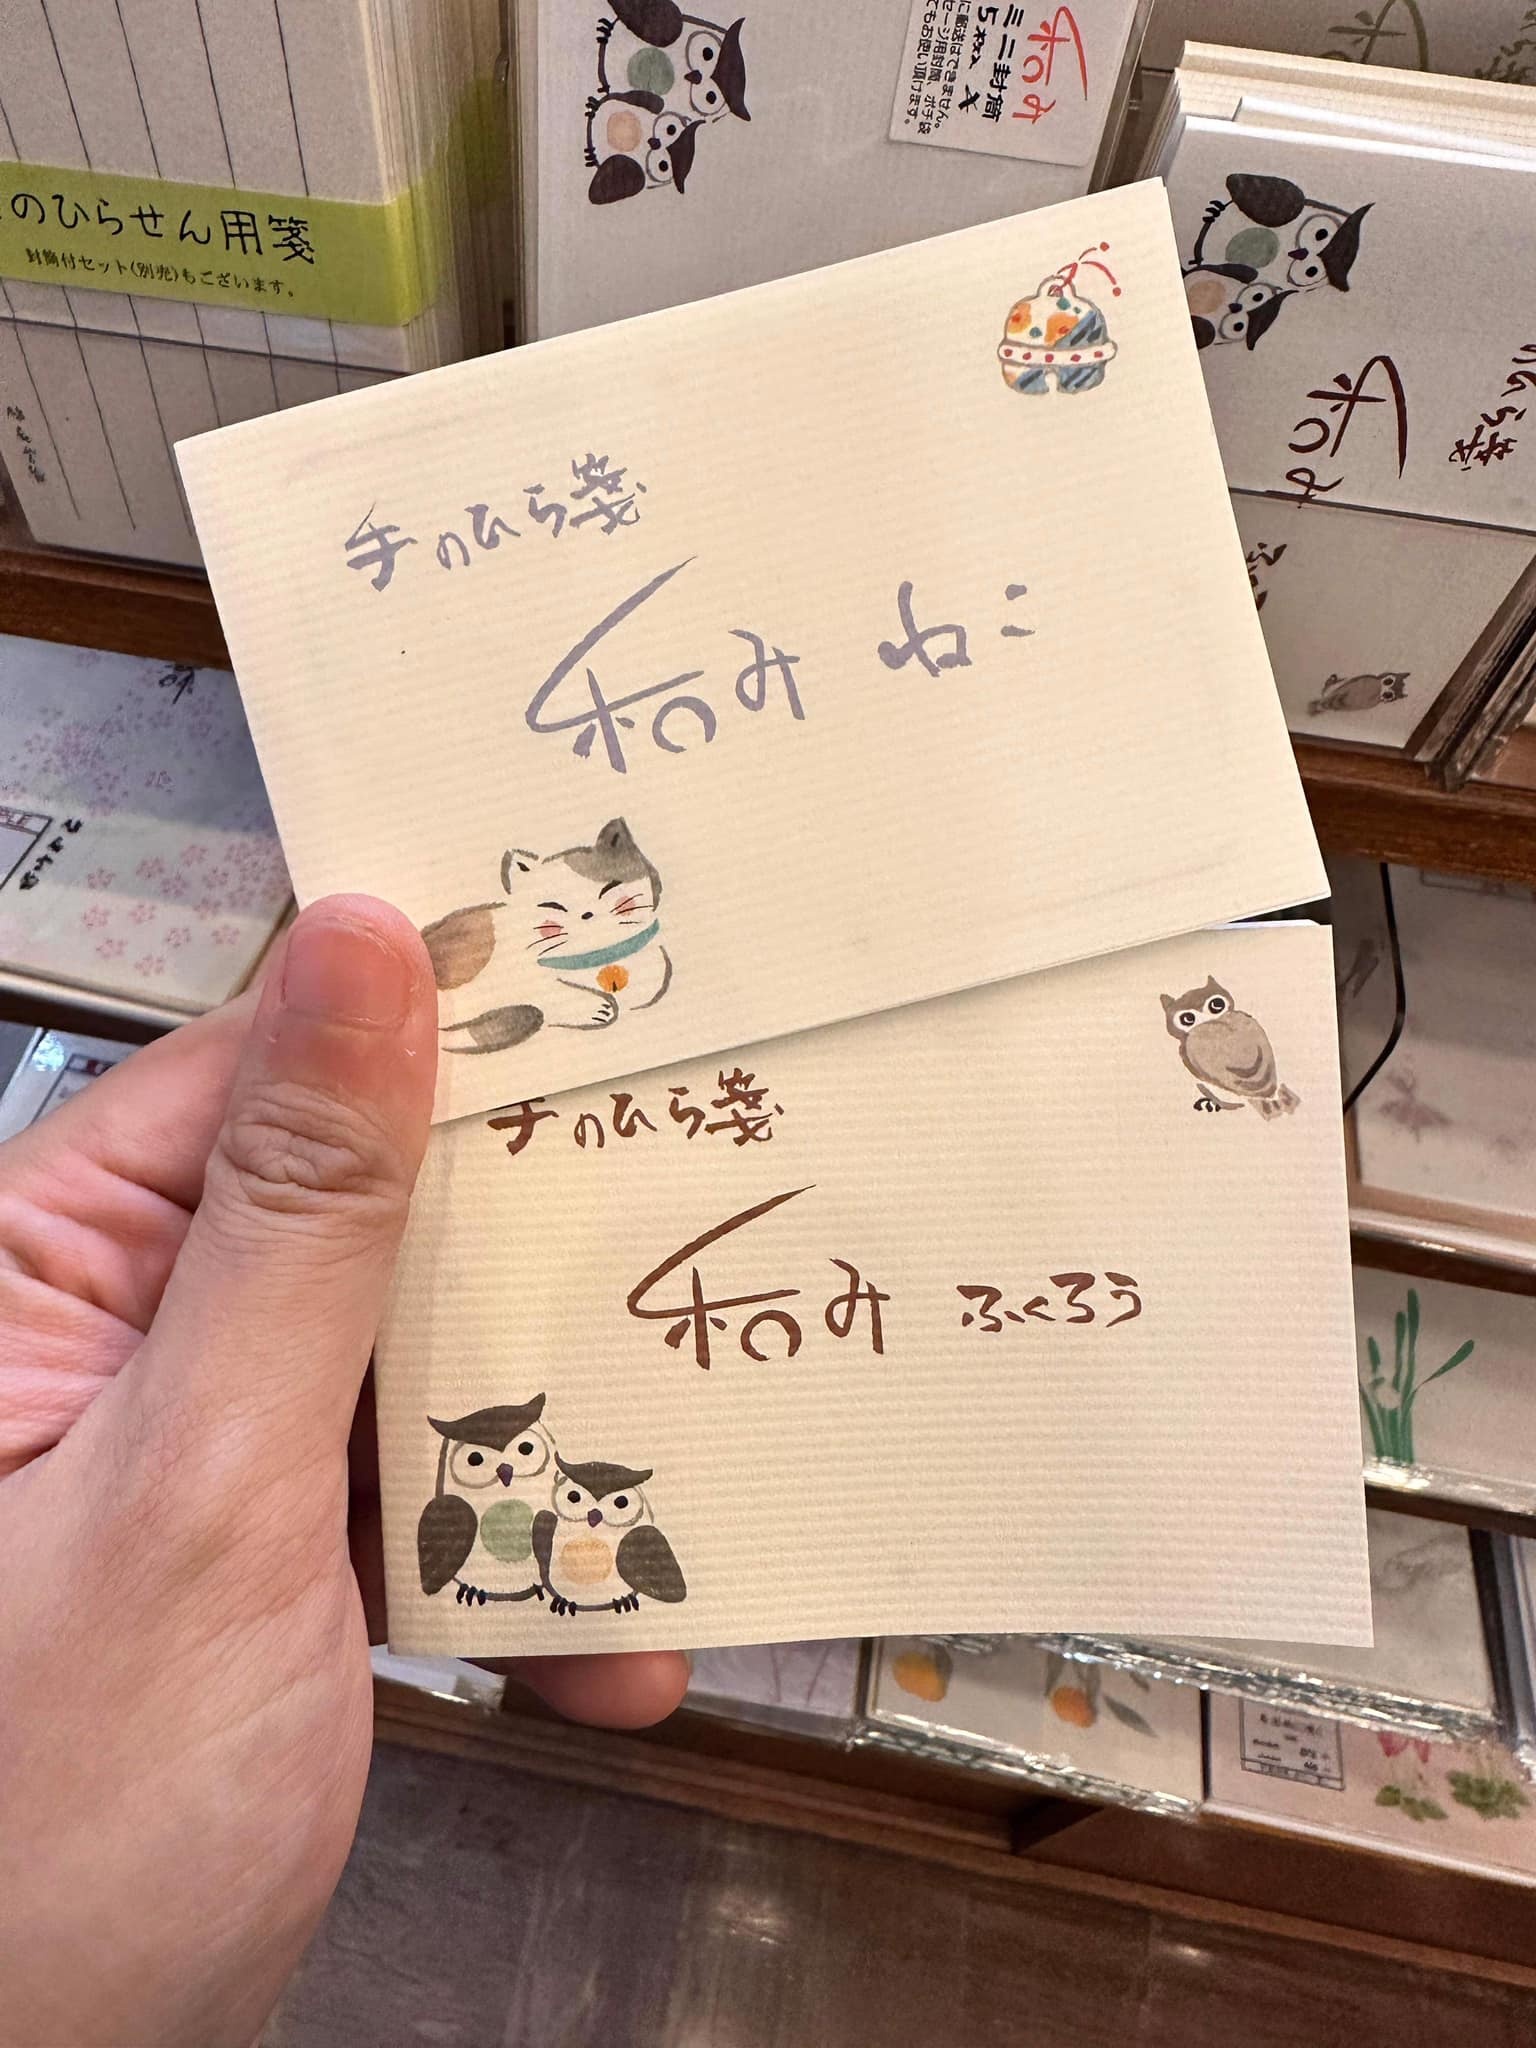 のひらせん用箋
封筒付セット(別売)もございます。
和み
ミニ封筒
5枚入
に郵送はできません。
セージ用封筒、ポチ袋
てもお使い頂けます。
和み
ひら箋
手のひら箋
和み ねこ
手のひら箋
和み ふくろう